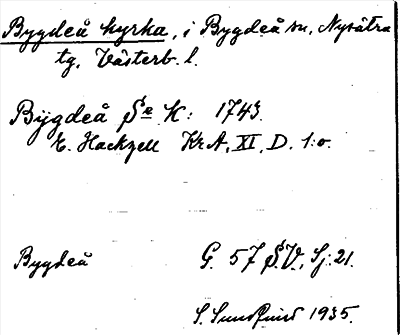 Bygdeå kyrka, i Bygdeå sn, Nysätra
tg, Västerb. l.
Bÿgdeå K: 1743.
E. Hackzell KrA, XI, D. 1:o.
Bygdeå G. 57 S.V., Sj: 21.
S. 1935.